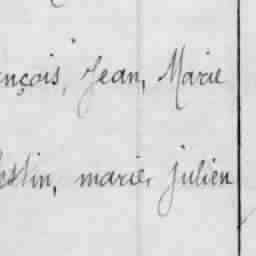 nçois, Jean, Marie
estin, marie, julien